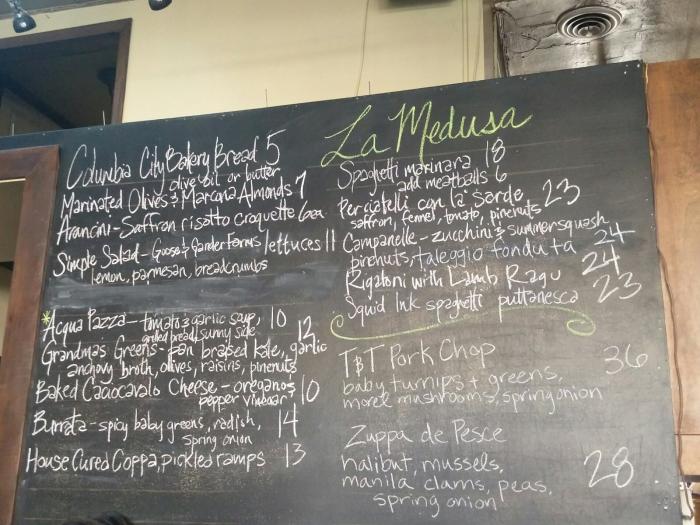 Columbia City Bakery Bread 5
olive oil or butter
Marinated Olives & Marcona Almonds 7
Arancini - Saffron risotto Croquette 6ea
Simple Salad - Goose & Gander Farms lettuces 11
lemon, parmesan, breadcrumbs
*Acqua Pazza - tomato & garlic soup, 10
grilled bread, sunny side
Grandmas Greens - pan braised kale, garlic 12
anchovy broth, olives, raisins, pinenuts
Baked Caciocavalo Cheese - oregano & 10
pepper vinegar
Burrata - spicy baby greens, radish, 14
spring onion
House Cured Coppa, pickled ramps 13
La Medusa
Spaghetti marinara 18
add meatballs 6
Perciatelli con la Sarde 23
saffron, fennel, tomato, pinenuts
Campanelle - zucchini & summersquash
pinenuts, taleggio fonduta 24
Rigatoni with Lamb Ragu 24
Squid Ink spaghetti puttanesca 23
T&T Pork Chop 36
baby turnips + greens,
morel mushrooms, spring onion
Zuppa de Pesce
halibut, mussels,
manila clams, peas, 28
spring onion